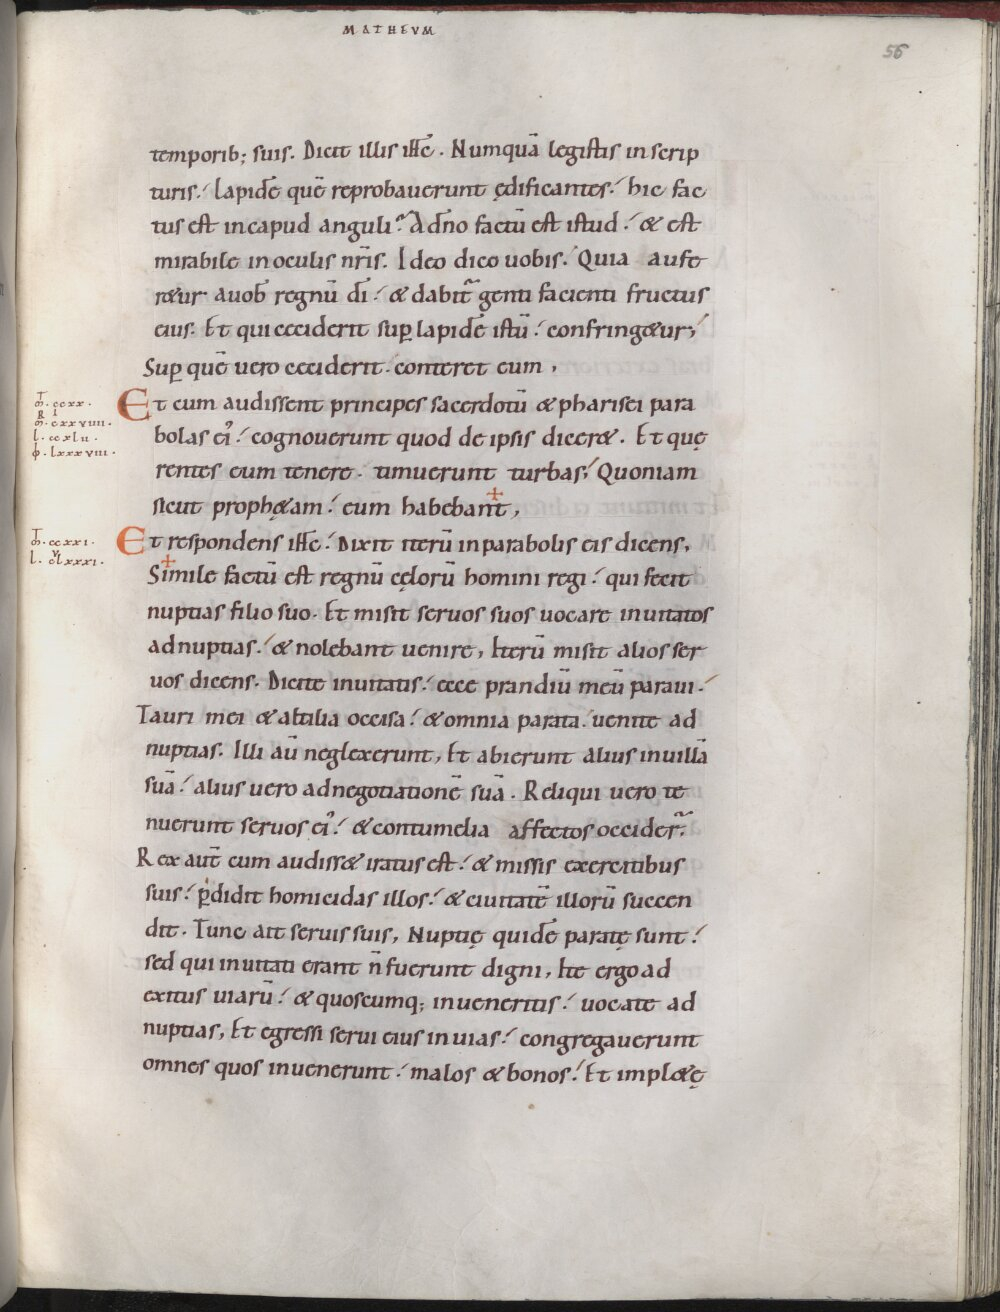 MATHEVM
56
temporib; suis. Dicit illis ihc̄. Numquā legistis in scrip
turis. lapidē quē reprobauerunt ędificantes. hic fac
tus est incapud anguli. Adn̄o factū est istud. & est
mirabile in oculis nr̄is. Ideo dico uobis. Quia aufe
r&ur auob̄ regnū dī. & dabit̄ genti facienti fructus
eius. Et qui ceciderit suꝑ lapidē istū. confring&ur,
Suꝑ quē uero ceciderit. conteret eum,
Et cum audissent principes sacerdotū & pharisei para
bolas ei᾽. cognouerunt quod de ipsis dicer&. Et quę
rentes eum tenere. timuerunt turbas, Quoniam
sicut proph&am. eum habebant,
m. ccxx.
m. cxxviiii.
l. ccxlii.
lxxxviii.
Et respondens ihc̄. Dixit iterū in parabolis eis dicens,
m. ccxxi.
l. clxxxi.
Simile factū est regnū cęlorū homini regi. qui fecit
nuptias filio suo. Et misit seruos suos uocare inuitatos
ad nuptias. & nolebant uenire, Iterū misit alios ser
uos dicens. Dicite inuitatis. ecce prandiū meū paraui.
Tauri mei & altilia occisa. & omnia parata. uenite ad
nuptias. Illi aū neglexerunt, Et abierunt alius in uillā
suā. alius uero ad negotiationē suā. Reliqui uero te
nuerunt seruos ei᾽. & contumelia affectos occider̄.
Rex aut̄ cum audiss& iratus est. & missis exercitibus
suis. ꝑdidit homicidas illos. & ciuitatē illorū succen
dit. Tunc ait seruis suis, Nuptię quidē paratę sunt.
sed qui inuitati erant n̄ fuerunt digni, Ite ergo ad
exitus uiarū. & quoscumq; inueneritis. uocate ad
nuptias, Et egressi serui eius in uias. congregauerunt
omnes quos inuenerunt. malos & bonos. Et impl&ę